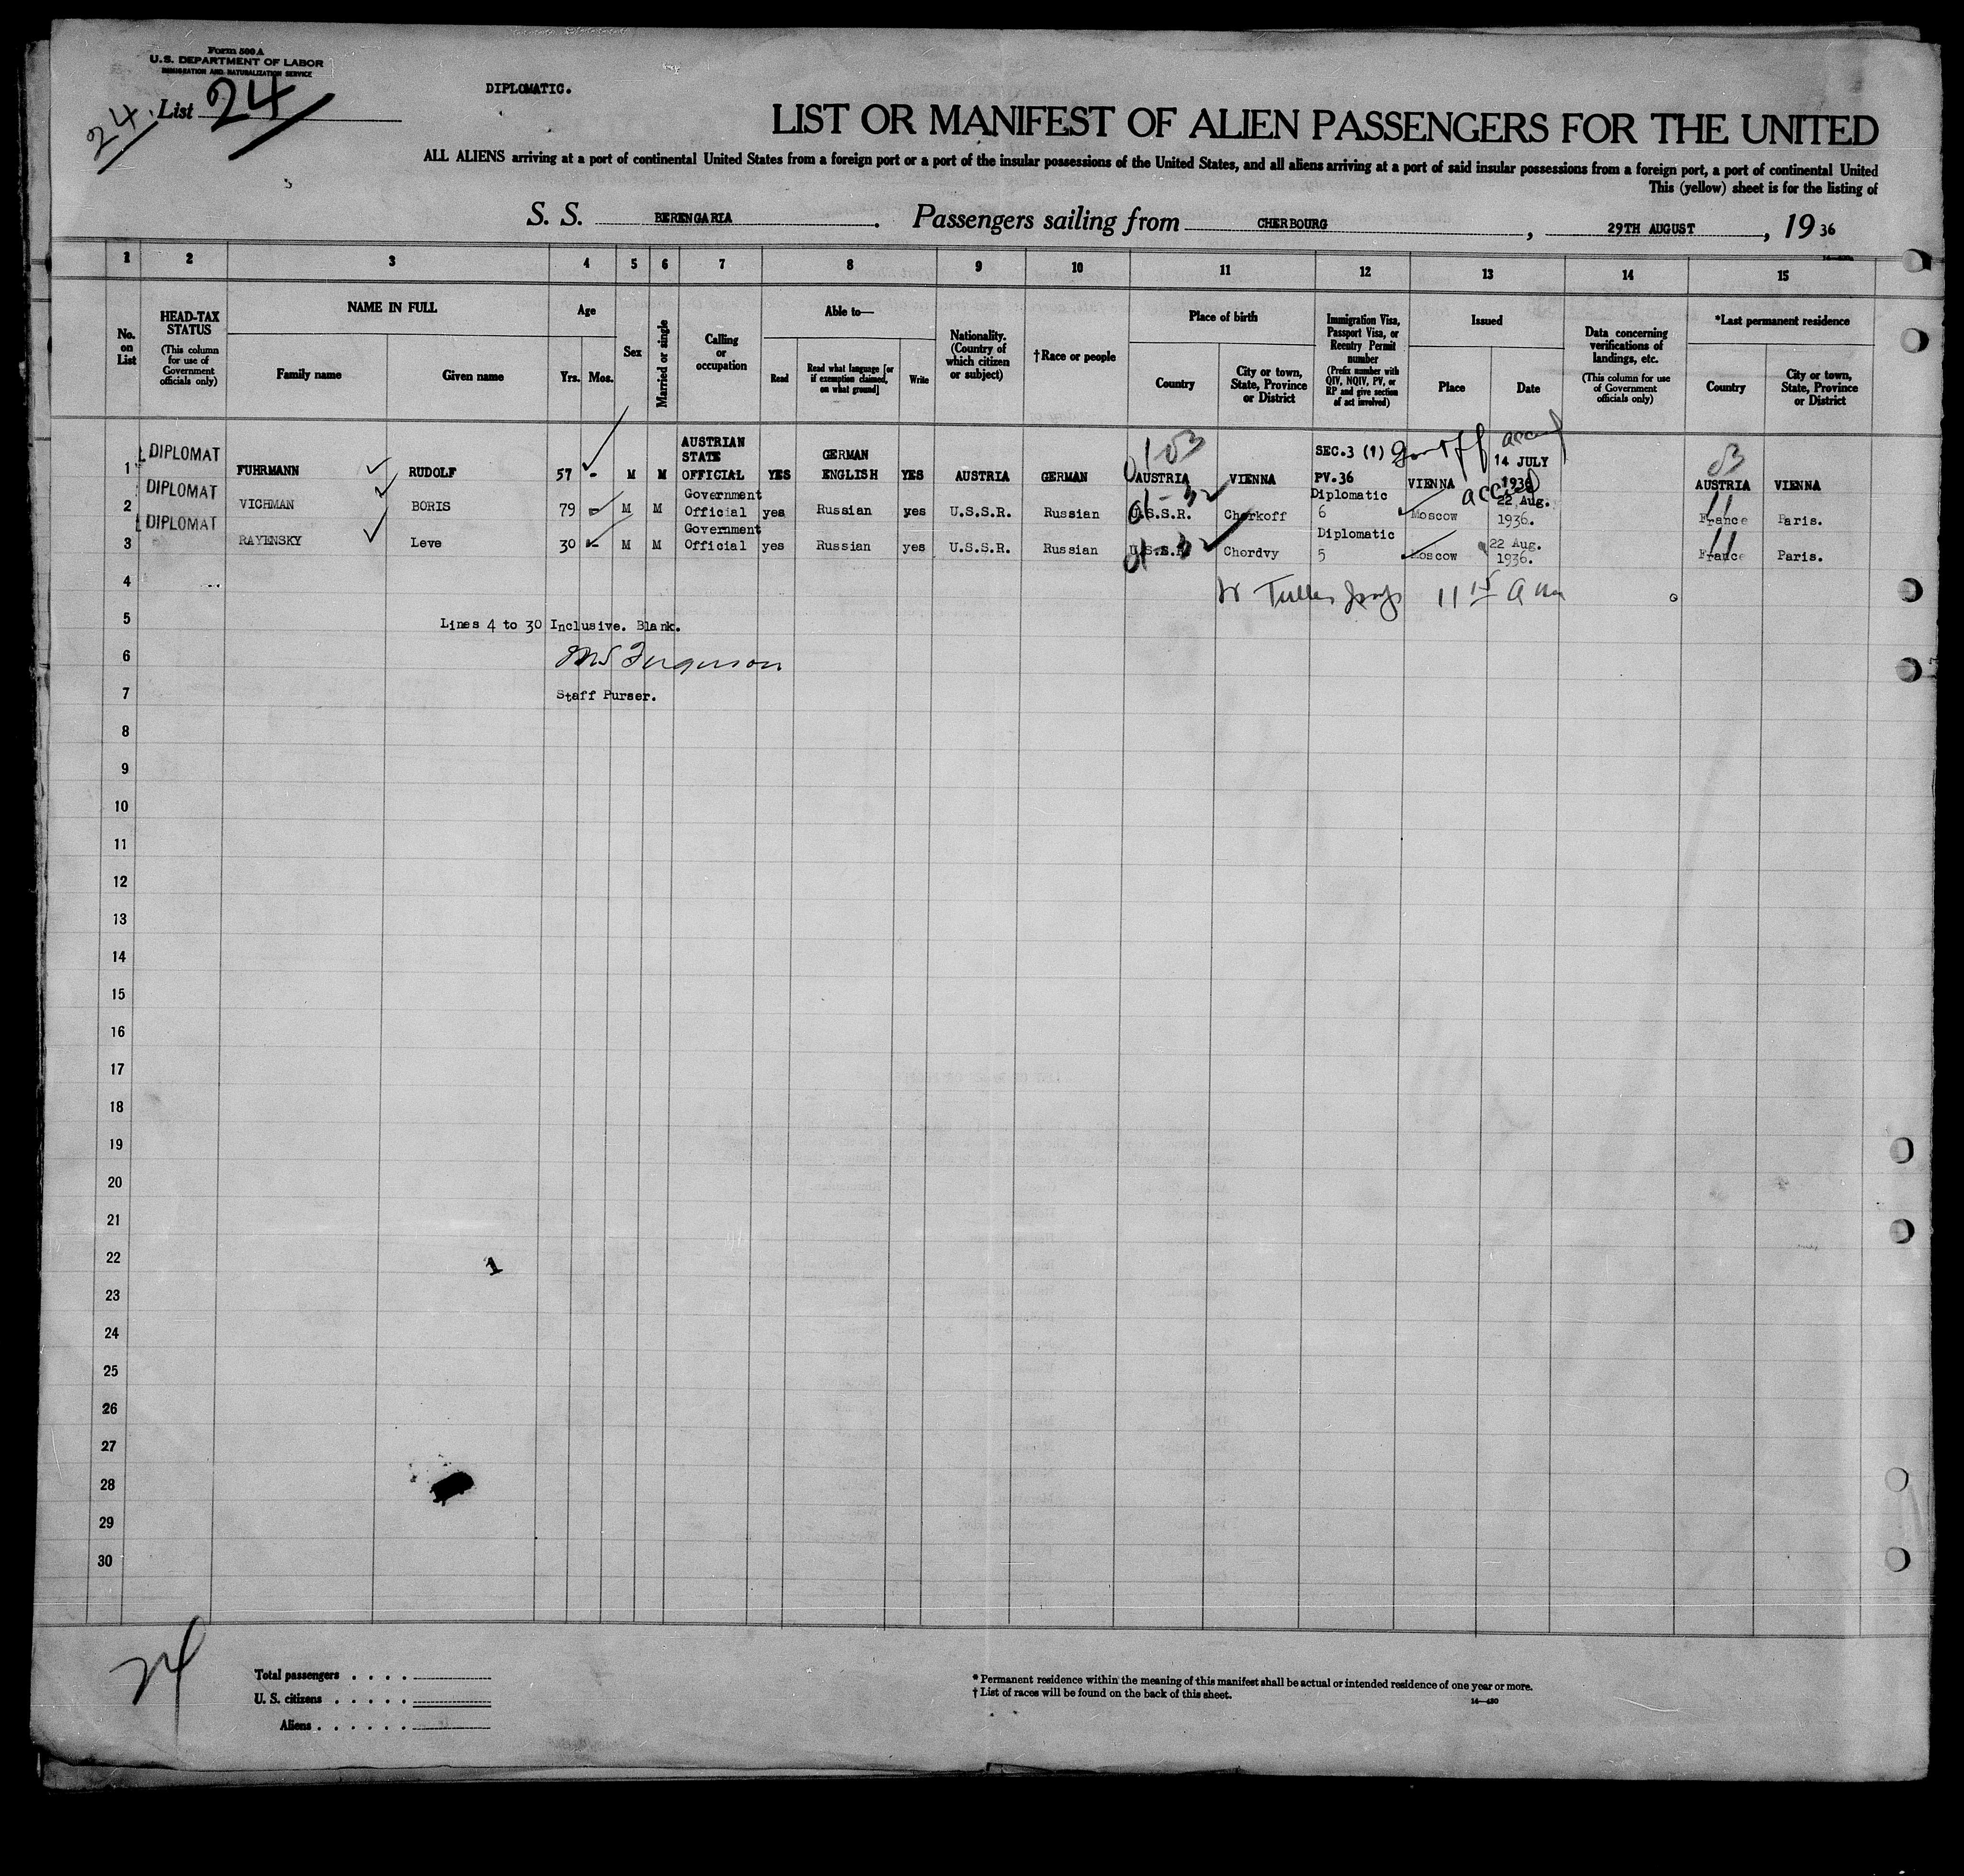 Form 500 A
U.S. DEPARTMENT OF LABOR
IMMIGRATION AND NATURALIZATION SERVICE
DIPLOMATIC.
24. List 24
LIST OR MANIFEST OF ALIEN PASSENGERS FOR THE UNITED
ALL ALIENS arriving at a port of continental United States from a foreign port or a port of the insular possessions of the United States, and all aliens arriving at a port of said insular possessions from a foreign port, a port of continental United
This (yellow) sheet is for the listing of
S. S. BERENGARIA. Passengers sailing from CHERBOURG, 29TH AUGUST, 19 36
1 2 3 4 5 6 7 8 9 10 11 12 13 14 15
No. on List
HEAD-TAX STATUS (This column for use of Government officials only)
NAME IN FULL
Family name Given name
Age
Yrs. Mos.
Sex
Married or single
Calling or occupation
Able to—
Read
Read what language [or if exemption claimed, on what ground]
Write
Nationality. (Country of which citizen or subject)
†Race or people
Place of birth
Country
City or town, State, Province or District
Immigration Visa, Passport Visa, or Reentry Permit number (Prefix number with QIV, NQIV, PV, or RP and give section of act involved)
Issued
Place Date
Data concerning verifications of landings, etc. (This column for use of Government officials only)
*Last permanent residence
Country
City or town, State, Province or District
1 DIPLOMAT FUHRMANN RUDOLF 57 - M M AUSTRIAN STATE OFFICIAL YES GERMAN ENGLISH YES AUSTRIA GERMAN AUSTRIA VIENNA SEC.3 (1) PV.36 VIENNA 14 JULY 1936 AUSTRIA VIENNA
2 DIPLOMAT VICHMAN BORIS 79 - M M Government Official yes Russian yes U.S.S.R. Russian U.S.S.R. Cherkoff Diplomatic 6 Moscow 22 Aug. 1936. France Paris.
3 DIPLOMAT RAYENSKY Leve 30 - M M Government Official yes Russian yes U.S.S.R. Russian U.S.S.R. Chordvy Diplomatic 5 Moscow 22 Aug. 1936. France Paris.
4
5 Lines 4 to 30 Inclusive. Blank.
6 Ferguson
7 Staff Purser.
8
9
10
11
12
13
14
15
16
17
18
19
20
21
22
23
24
25
26
27
28
29
30
24
Total passengers . . . .
U. S. citizens . . . . .
Aliens . . . . . .
* Permanent residence within the meaning of this manifest shall be actual or intended residence of one year or more.
† List of races will be found on the back of this sheet.
14—430